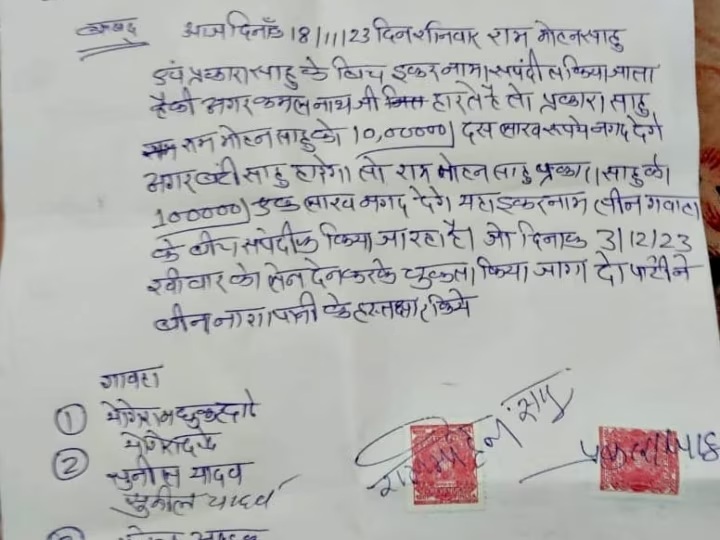 आज दिनाँक 18/11/23 दिन शनिवार राम मोहन साहु
एवं प्रकाश साहु के बिच इकरनामा सपंदीत किया जाता
है की अगर कमलनाथ जी हारते है तो प्रकाश साहु
राम मोहन साहु को 10,00000/ दस लाख रूपये नगद देगे
अगर बंटी साहु हारेगे तो राम मोहन साहु प्रकाश साहु को
100000/ एक लाख नगद देगे यहा इकरनाम तीन गवाहा
के बीच सपंदीत किया जा रहा है। जो दिनाक 3/12/23
रवीवार को लेन देन करके चुकता किया जागा दो पार्टी ने
बीन नाशा पानी के हस्ताक्षर किये
गावहा
①
②
सुनील यादव
सुनील यादव
राममोहन साहु